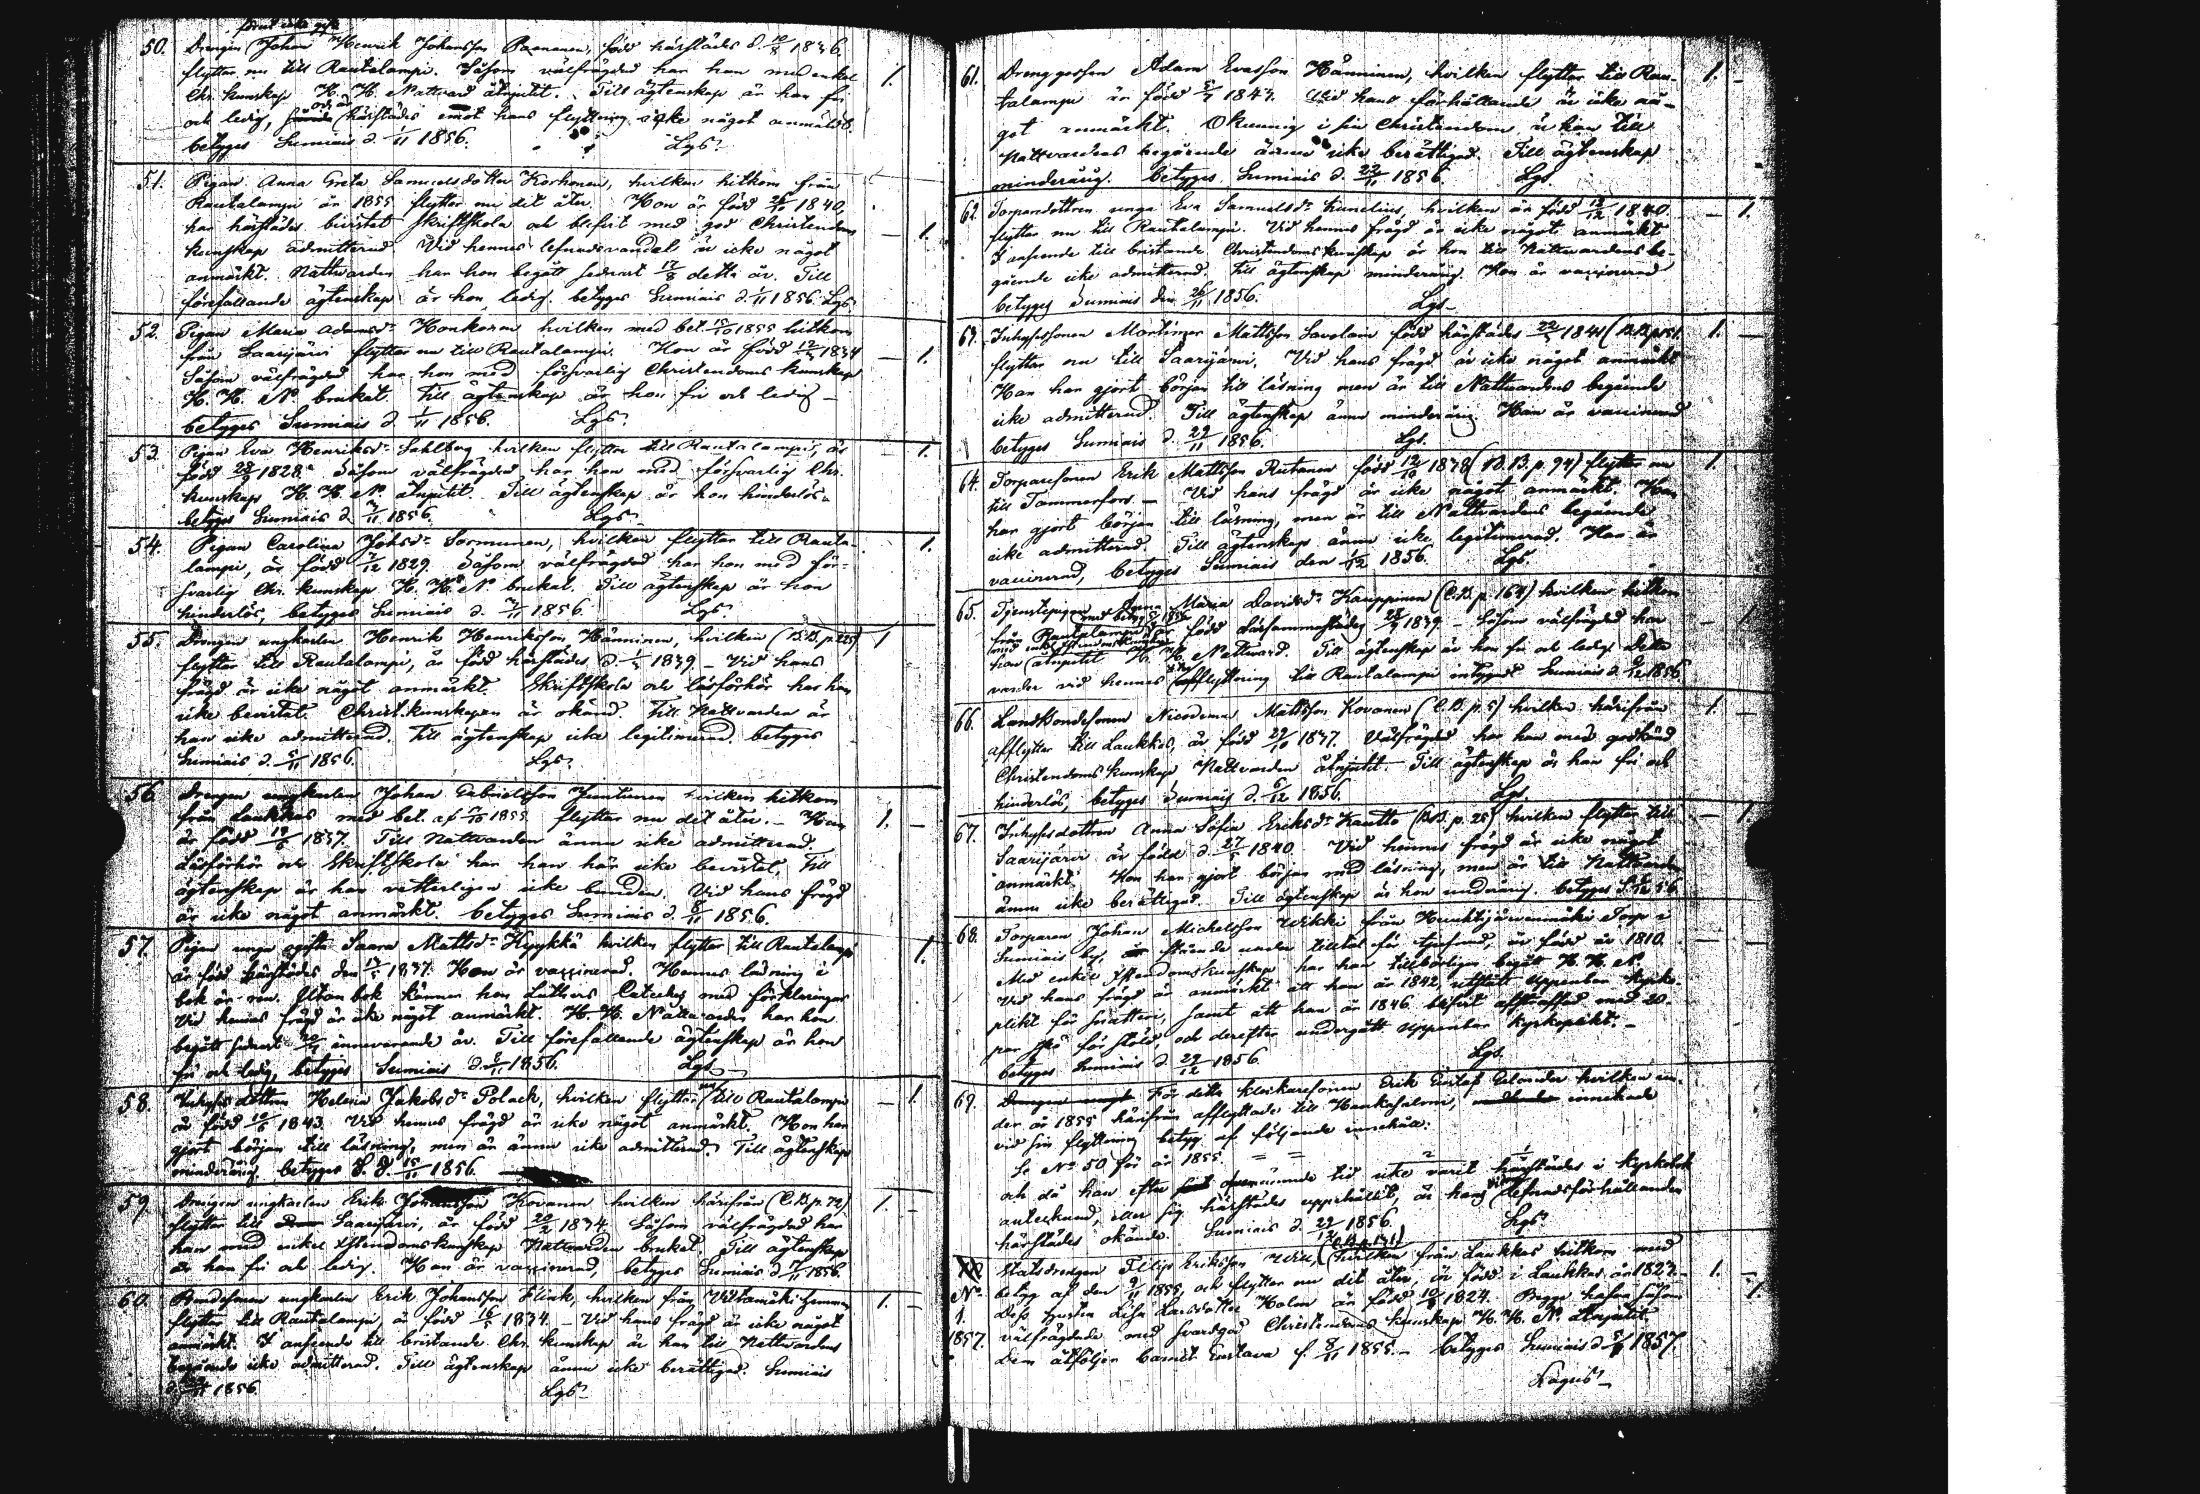 förut icke gift
50. Drengen Johan Henrik Johansson Paananen, född härstädes d. 10/8 1836,
flyttar nu till Rautalampi. Såsom välfrägdad har han med enkel
Chr. kunskap H. H. Nattvard åtnjutit. Till ägtenskap är han fri
och ledig, härstädes emot hans flyttning icke något anmäldt.
betyges Sumiais d. 1/11 1856. Lgs.
51. Pigan Anna Greta Samuelsdotter Korhonen, hvilken hitkom från
Rautalampi år 1855 flyttar nu dit åter. Hon är född 1840,
har härstädes bevistat skriftskola och blifvit med god Christendoms
kunskap admitterad. Vid hennes lefnadsvandel är icke något
anmärkt. Nattvarden har hon begått sednast 17/8 detta år. Till
förefallande ägtenskap är hon ledig. betyges Sumiais d. 1/11 1856. Lgs.
52. Pigan Maria Adamsdr Honkonen hvilken med bet. 15/10 1855 hitkom
från Saarijärvi flyttar nu till Rautalampi. Hon är född 1834
Såsom välfrägdad har hon med försvarlig Christendoms kunskap
H. H. N. brukat. Till ägtenskap är hon fri och ledig –
betyges Sumiais d. 1/11 1856. Lgs.
53. Pigan Eva Henriksdr Sahlberg hvilken flyttar till Rautalampi, är
född 1828. Såsom välfrägdad har hon med försvarlig Chr.
kunskap H. H. N. åtnjutit. Till ägtenskap är hon hinderlös.
betyges Sumiais d. 1856. Lgs.
54. Pigan Carolina Johsdr Sormunen, hvilken flyttar till Rauta-
lampi, är född 1829. Såsom välfrägdad har hon med för-
svarlig Chr. kunskap H. H. N brukat. Till ägtenskap är hon
hinderlös, betyges Sumiais d. 1856. Lgs.
55. Drengen ungkarlen Henrik Henriksson Hänninen, hvilken (B.B. p. 225)
flyttar till Rautalampi, är född härstädes d. 1839 – Vid hans
frägd är icke något anmärkt. Skriftskola och läsförhör har han
icke bevistat. Christ. kunskapen är okänd. Till Nattvarden är
han icke admitterad. Till ägtenskap icke legitimerad. betyges
Sumiais d. 5/11 1856. Lgs.
56. Drengen ungkarlen Johan Gabrielsson Juntunen hvilken hitkom
från Laukkas med bet. af 1855 flyttar nu dit åter. – Han
är född 1837. Till Nattvarden ännu icke admitterad.
Läsförhör och Skriftskola har han här icke bevistat. Till
ägtenskap är han vetterligen icke bunden. Vid hans frägd
är icke något anmärkt. betyges Sumiais d. 8/11 1856.
57. Pigan unga ogifta Saara Mattsdr Hyykkä hvilken flyttar till Rautalampi
är född härstädes den 1837. Hon är vaccinerad. Hennes läsning i
bok är ren. Utom bok känner hon Luthers Cateches med förklaringar
Vid hennes frägd är icke något anmärkt. H. H. Nattvarden har hon
begått sednast innevarande år. Till förefallande ägtenskap är hon
fri och ledig, betyges Sumiais d. 1856. Lgs.
58. Inhyses dottren Helena Jakobsdr Polack, hvilken flyttar till Rautalampi
är född 1843. Vid hennes frägd är icke något anmärkt. Hon har
gjort början till läsning, men är ännu icke admitterad. Till ägtenskap
minderårig. betyges 15/11 1856.
59. Drengen ungkarlen Erik Kovanen hvilken härifrån (C.B. p. 72)
flyttar till Saarijärvi, är född 1834. Såsom välfrägdad har
han med enkel Xstendomskunskap Nattvarden brukat. Till ägtenskap
är han fri och ledig. Han är vaccinerad, betyges Sumiais d. 1856.
60. Bondesonen ungkarlen Erik Johansson Flink, hvilken från hemman
flyttar till Rautalampi, är född 16/5 1834. – Vid hans frägd är icke något
anmärkt. I anseende till bristande Chr. kunskap är han till Nattvardens
begående icke admitterad. Till ägtenskap ännu icke berättigad. Sumiais
d. 1856. Lgs.
61. Drenggossen Adam Evasson Hänninen, hvilken flyttar till Rau-
talampi är född 1843. Vid hans förhållande är icke nå-
got anmärkt. Okunnig i sin Christendom, är han till
Nattvardens begående ännu icke berättigad. Till ägtenskap
minderårig. betyges Sumiais d. 1856. Lgs.
62. Torparedottren unga Eva Samuelsdr Kumelius, hvilken är född 1840.
flyttar nu till Rautalampi. Vid hennes frägd är icke något anmärkt
I anseende till bristande Christendoms kunskap är hon till Nattvardens be-
gående icke admitterad. Till ägtenskap minderårig. Hon är vaccinerad
betyges Sumiais den 26/11 1856. Lgs.
63. Inhysessonen Mårtin Mattsson Savolain född härstädes 1841 (B.B. p.
flyttar nu till Saarijärvi. Vid hans frägd är icke något anmärkt
Han har gjort början till läsning men är till Nattvardens begående
icke admitterad. Till ägtenskap ännu minderårig. Han är vaccinerad
betyges Sumiais d. 29/11 1856. Lgs.
64. Torparesonen Erik Mattsson Rutanen född 12/10 1838 (B.B. p. 94) flyttar nu
till Tammerfors. – Vid hans frägd är icke något anmärkt. Han
har gjort början till läsning, men är till Nattvardens begående
icke admitterad. Till ägtenskap ännu icke legitimerad. Han är
vaccinerad, betyges Sumiais den 1856. Lgs.
65. Tjenstepigan Anna Maria Davidsdr Kauppinen (C.B. p. 164) hvilken hitkom
från Rautalampi är född därsammastädes 1839 – Såsom välfrägdad har
hon åtnjutit H. H. Nattvard. Till ägtenskap är hon fri och ledig. Detta
varder vid hennes afflyttning till Rautalampi intygat Sumiais d. 1856.
66. Landbondesonen Nicodemus Mattsson Kovanen (C.B. p. 5) hvilken härifrån
afflyttar till Laukkas, är född 29/10 1837. Välfrägdad har han med godkänd
Christendoms kunskap Nattvarden åtnjutit. Till ägtenskap är han fri och
hinderlös, betyges Sumiais d. 6/12 1856. Lgs.
67. Inhysesdottren Anna Sofia Eriksdr Kautto (B.B. p. 25) hvilken flyttar till
Saarijärvi är född d. 27/5 1840. Vid hennes frägd är icke något
anmärkt. Hon har gjort början med läsning, men är till Nattvarden
ännu icke berättigad. Till ägtenskap är hon underårig. betyges S. 56.
68. Torparen Johan Michelsson Wikki från Torp i
Sumiais by, stående under tilltal för tjufnad, är född år 1810.
Med enkel Xstendomskunskap har han tillbörligen begått H. H. N.
Vid hans frägd är anmärkt att han år 1842 utstått uppenbar kyrko-
plikt för snatteri, samt att han år 1846 blifvit afstraffad med 20
par spö för stöld, och derefter undergått uppenbar kyrkoplikt. –
betyges Sumiais d. 29/12 1856. Lgs.
69. För detta klockaresonen Erik Gustaf Gelander hvilken un-
der år 1855 härifrån afflyttade till Hankasalmi, innehade
vid sin flyttning betyg af följande innehåll:
Se No 50 för år 1855. = =
och då han efter nämnde tid icke varit härstädes i kyrkobok
antecknad, eller sig härstädes uppehållit, är hans lefnadsförhållanden
härstädes okände. Sumiais d. 29/12 1856. Lgs.
No 1. 1857. Statsdrengen Filip Eriksson Will, hvilken från Laukkas hitkom med
betyg af den 9/11 1855, och flyttar nu dit åter, är född i Laukkas år 1827.
Dess hustru Lisa Larsdotter Holm är född 1824. Begge hafva såsom
välfrägdade med svardgod Christendoms kunskap H. H. N. åtnjutit.
Dem åtföljer barnet Gustava f. 8/11 1855. – betyges Sumiais d. 1857.
Lagus